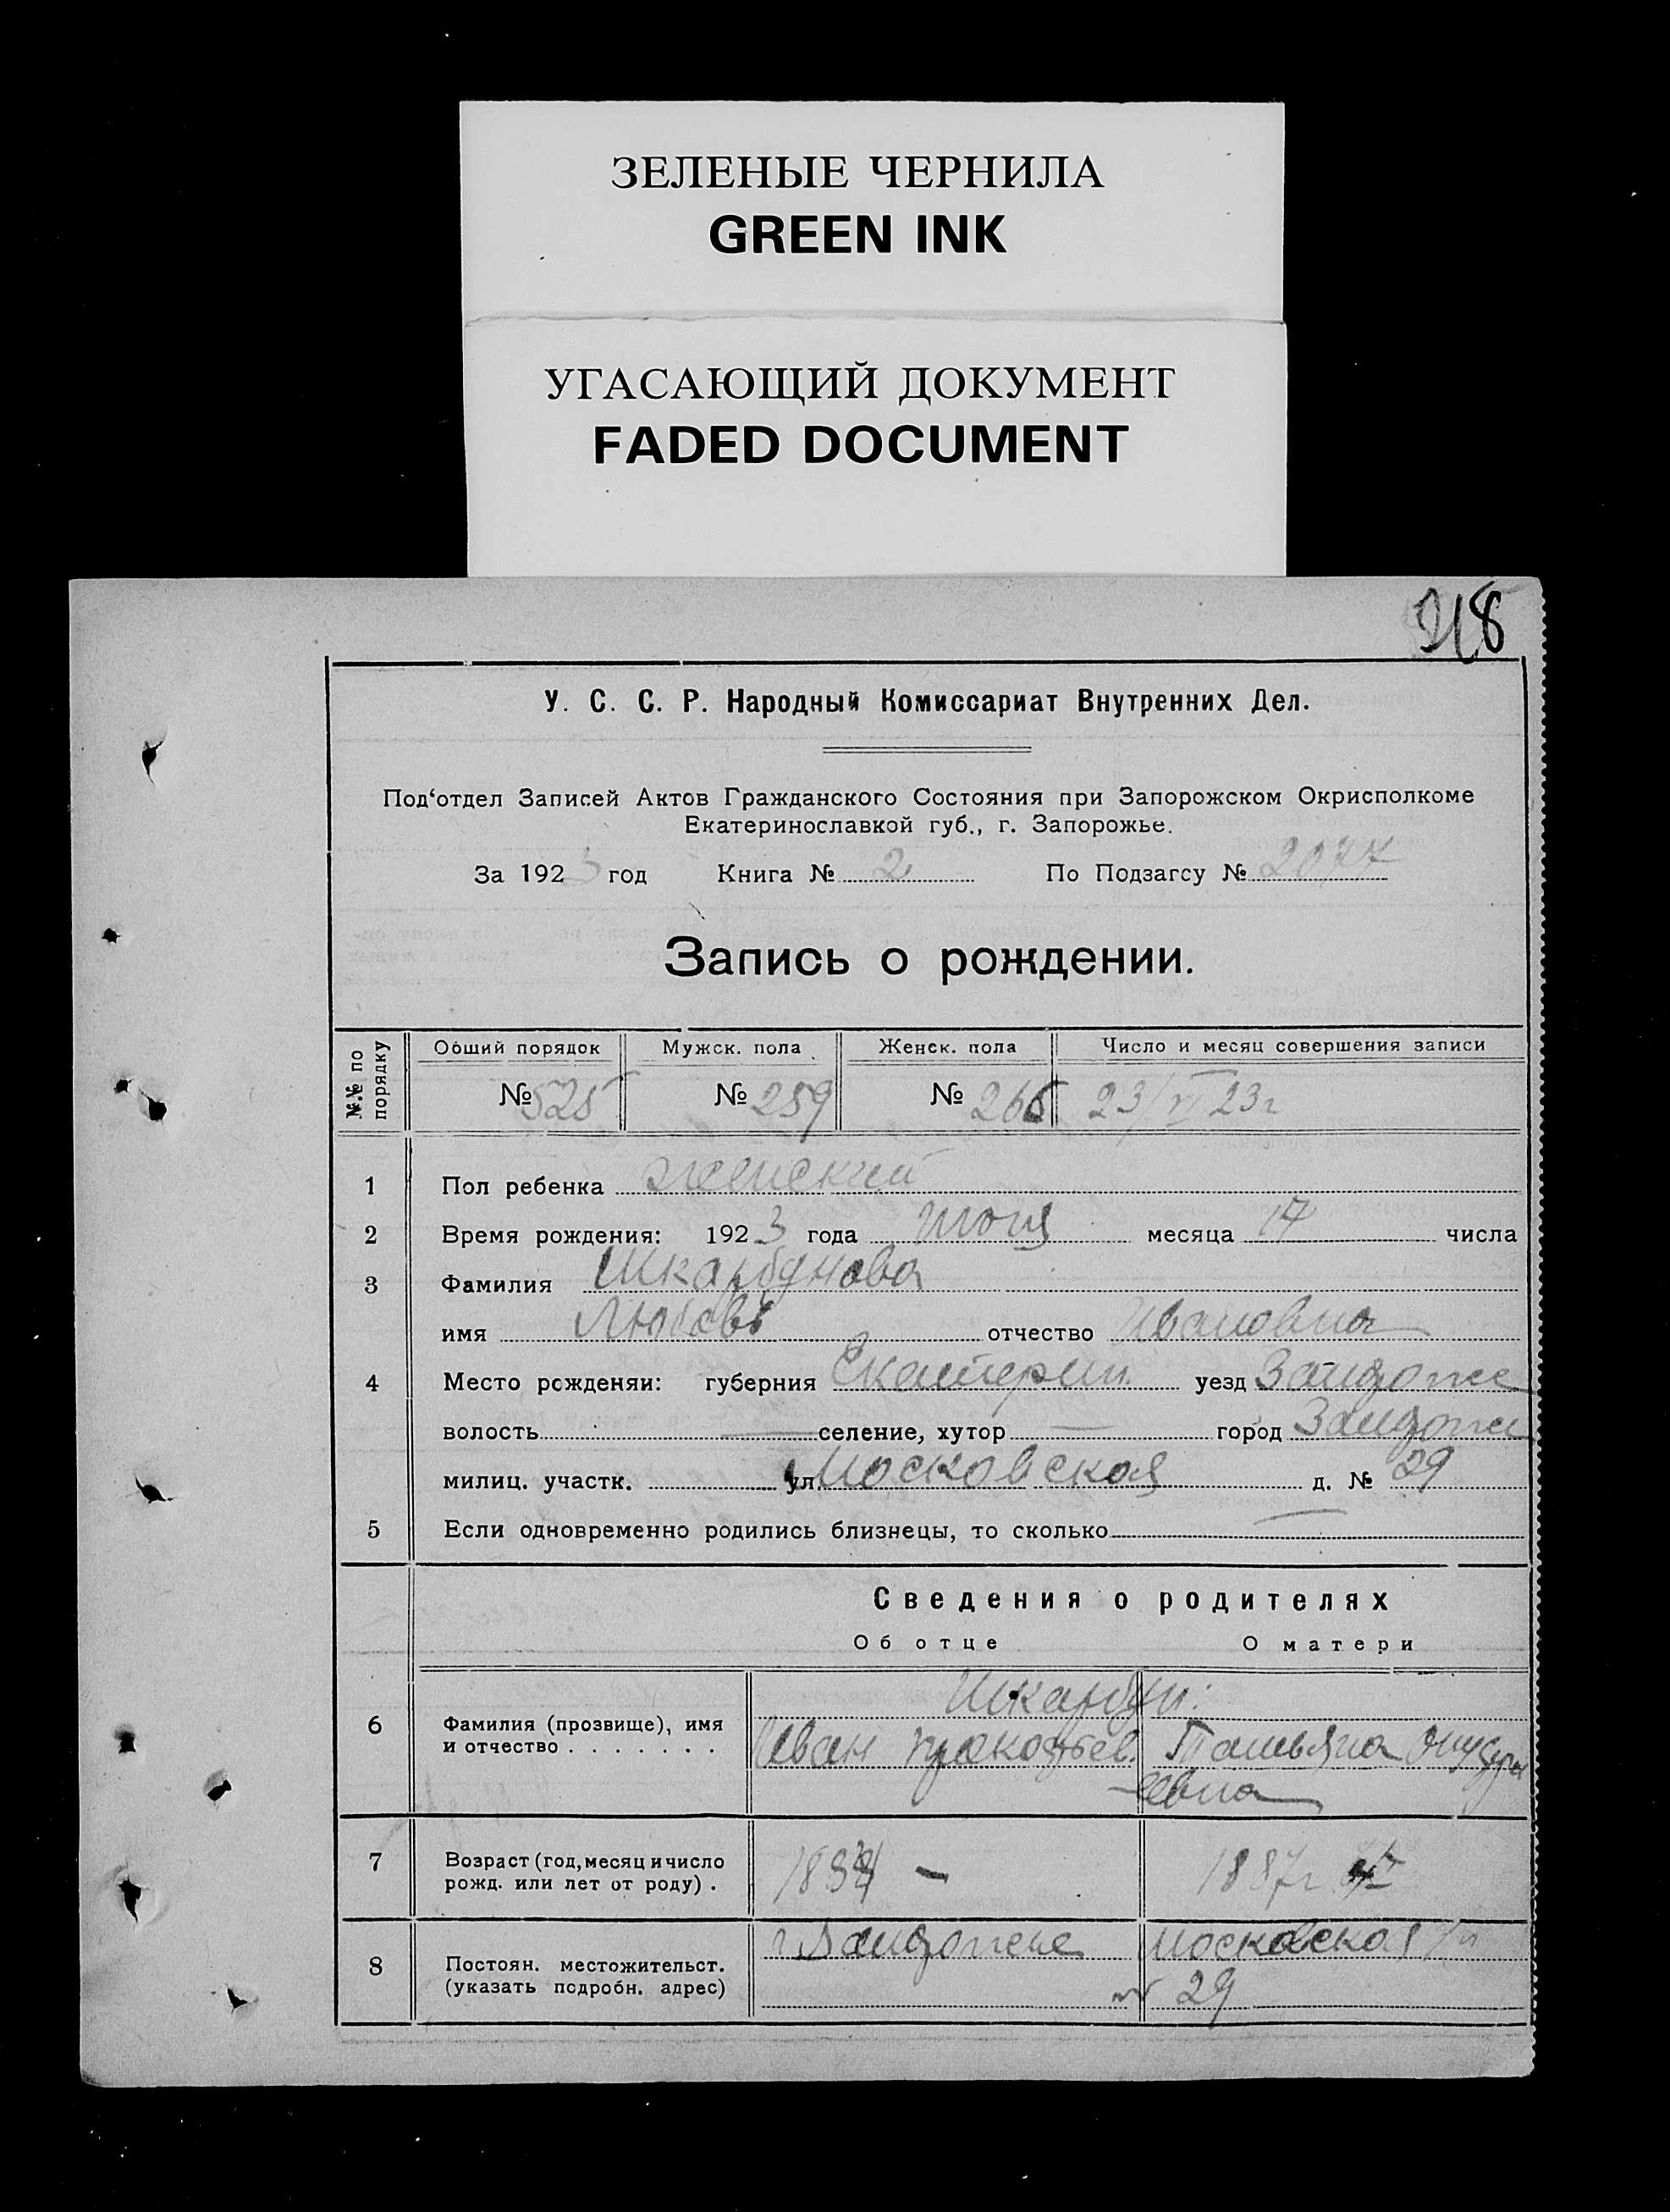 ЗЕЛЕНЫЕ ЧЕРНИЛА
GREEN INK
УГАСАЮЩИЙ ДОКУМЕНТ
FADED DOCUMENT
318
У. С. С. Р. Народный Комиссариат Внутренних Дел.
Под‘отдел Записей Актов Гражданского Состояния при Запорожском Окрисполкоме
Екатеринославкой губ., г. Запорожье.
За 1923 год Книга № 2 По Подзагсу № 2077
Запись о рождении.
№.№ по порядку
Общий порядок Мужск. пола Женск. пола Число и месяц совершения записи
№ 525 № 259 № 266 23/VI 23г
1 Пол ребенка женский
2 Время рождения: 1923 года июня месяца 17 числа
3 Фамилия Шкарбунова
имя Любовь отчество Ивановна
4 Место рожденяи: губерния Екатерин. уезд Запорож
волость — селение, хутор — город Запорож
милиц. участк. ул Московская д. № 29
5 Если одновременно родились близнецы, то сколько —
Сведения о родителях
Об отце О матери
Шкарбун:
6 Фамилия (прозвище), имя
и отчество . . . . . . . Иван Прокофьев. Татьяна
евна
7 Возраст (год, месяц и число
рожд. или лет от роду) . — 1887г
8 г. Запорожье Московская
Постоян. местожительст.
(указать подробн. адрес) № 29